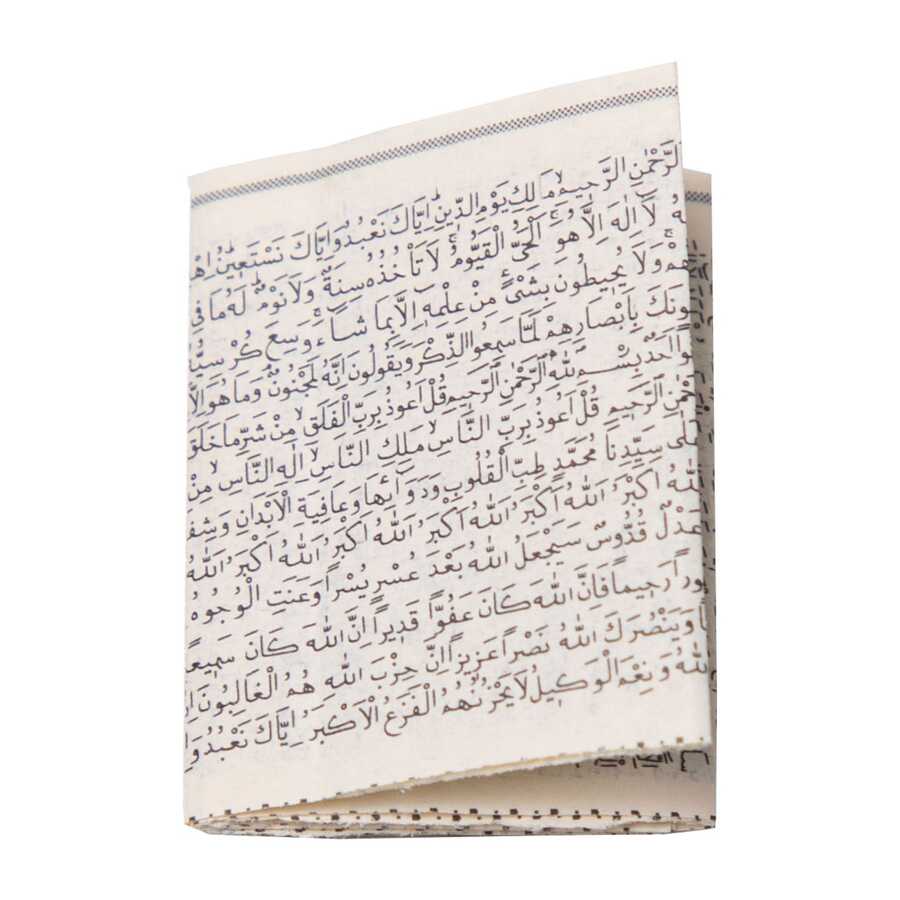 الرَّحْمٰنِ الرَّحِيمِ مَالِكِ يَوْمِ الدِّينِ اِيَّاكَ نَعْبُدُ وَاِيَّاكَ نَسْتَعِينُ
لَا اِلٰهَ اِلَّا هُوَ الْحَىُّ الْقَيُّومُ لَا تَأْخُذُهُ سِنَةٌ وَلَا نَوْمٌ لَهُ مَا فِى
وَلَا يُحِيطُونَ بِشَىْءٍ مِنْ عِلْمِهِ اِلَّا بِمَا شَاءَ وَسِعَ كُرْسِيُّهُ
بِاَبْصَارِهِمْ لَمَّا سَمِعُوا الذِّكْرَ وَيَقُولُونَ اِنَّهُ لَمَجْنُونٌ وَمَا هُوَ اِلَّا
اَحَدٌ بِسْمِ اللّٰهِ الرَّحْمٰنِ الرَّحِيمِ قُلْ اَعُوذُ بِرَبِّ الْفَلَقِ مِنْ شَرِّ مَا خَلَقَ
الرَّحِيمِ قُلْ اَعُوذُ بِرَبِّ النَّاسِ مَلِكِ النَّاسِ اِلٰهِ النَّاسِ مِنْ
عَلٰى سَيِّدِنَا مُحَمَّدٍ طِبِّ الْقُلُوبِ وَدَوَائِهَا وَعَافِيَةِ الْاَبْدَانِ
اَللّٰهُ اَكْبَرُ اَللّٰهُ اَكْبَرُ اَللّٰهُ اَكْبَرُ اَللّٰهُ اَكْبَرُ اَللّٰهُ اَكْبَرُ اَللّٰهُ
عَدْلٌ قُدُّوسٌ سَيَجْعَلُ اللّٰهُ بَعْدَ عُسْرٍ يُسْرًا وَعَنَتِ الْوُجُوهُ
رَحِيمًا فَاِنَّ اللّٰهَ كَانَ عَفُوًّا قَدِيرًا اِنَّ اللّٰهَ كَانَ سَمِيعًا
وَيَنْصُرَكَ اللّٰهُ نَصْرًا عَزِيزًا اِنَّ حِزْبَ اللّٰهِ هُمُ الْغَالِبُونَ
اللّٰهُ وَنِعْمَ الْوَكِيلُ لَا يَحْزُنُهُمُ الْفَزَعُ الْاَكْبَرُ اِيَّاكَ نَعْبُدُ وَ